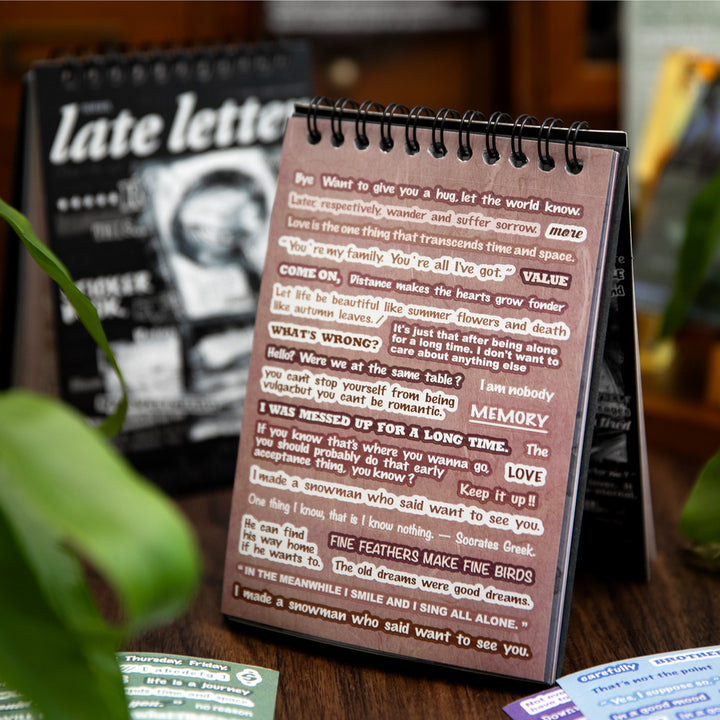 late letter
Bye Want to give you a hug, let the world know.
Later, respectively, wander and suffer sorrow. more
Love is the one thing that transcends time and space.
"You're my family. You're all I've got." VALUE
COME ON, Distance makes the hearts grow fonder
Let life be beautiful like summer flowers and death
like autumn leaves./
WHAT'S WRONG?
It's just that after being alone
for a long time, I don't want to
care about anything else
Hello? Were we at the same table?
I am nobody
you can't stop yourself from being
vulgarbut you cant be romantic.
MEMORY
I WAS MESSED UP FOR A LONG TIME. The
If you know that's where you wanna go,
you should probably do that early
acceptance thing, you know?
LOVE
Keep it up!!
I made a snowman who said want to see you.
One thing I know, that is I know nothing. — Socrates Greek.
He can find
his way home
if he wants to.
FINE FEATHERS MAKE FINE BIRDS
The old dreams were good dreams.
"IN THE MEANWHILE I SMILE AND I SING ALL ALONE."
I made a snowman who said want to see you.
Thursday, Friday,
life is a journey
no reason
carefully BROTHER
That's not the point
"Yes, I suppose so."
a good mood